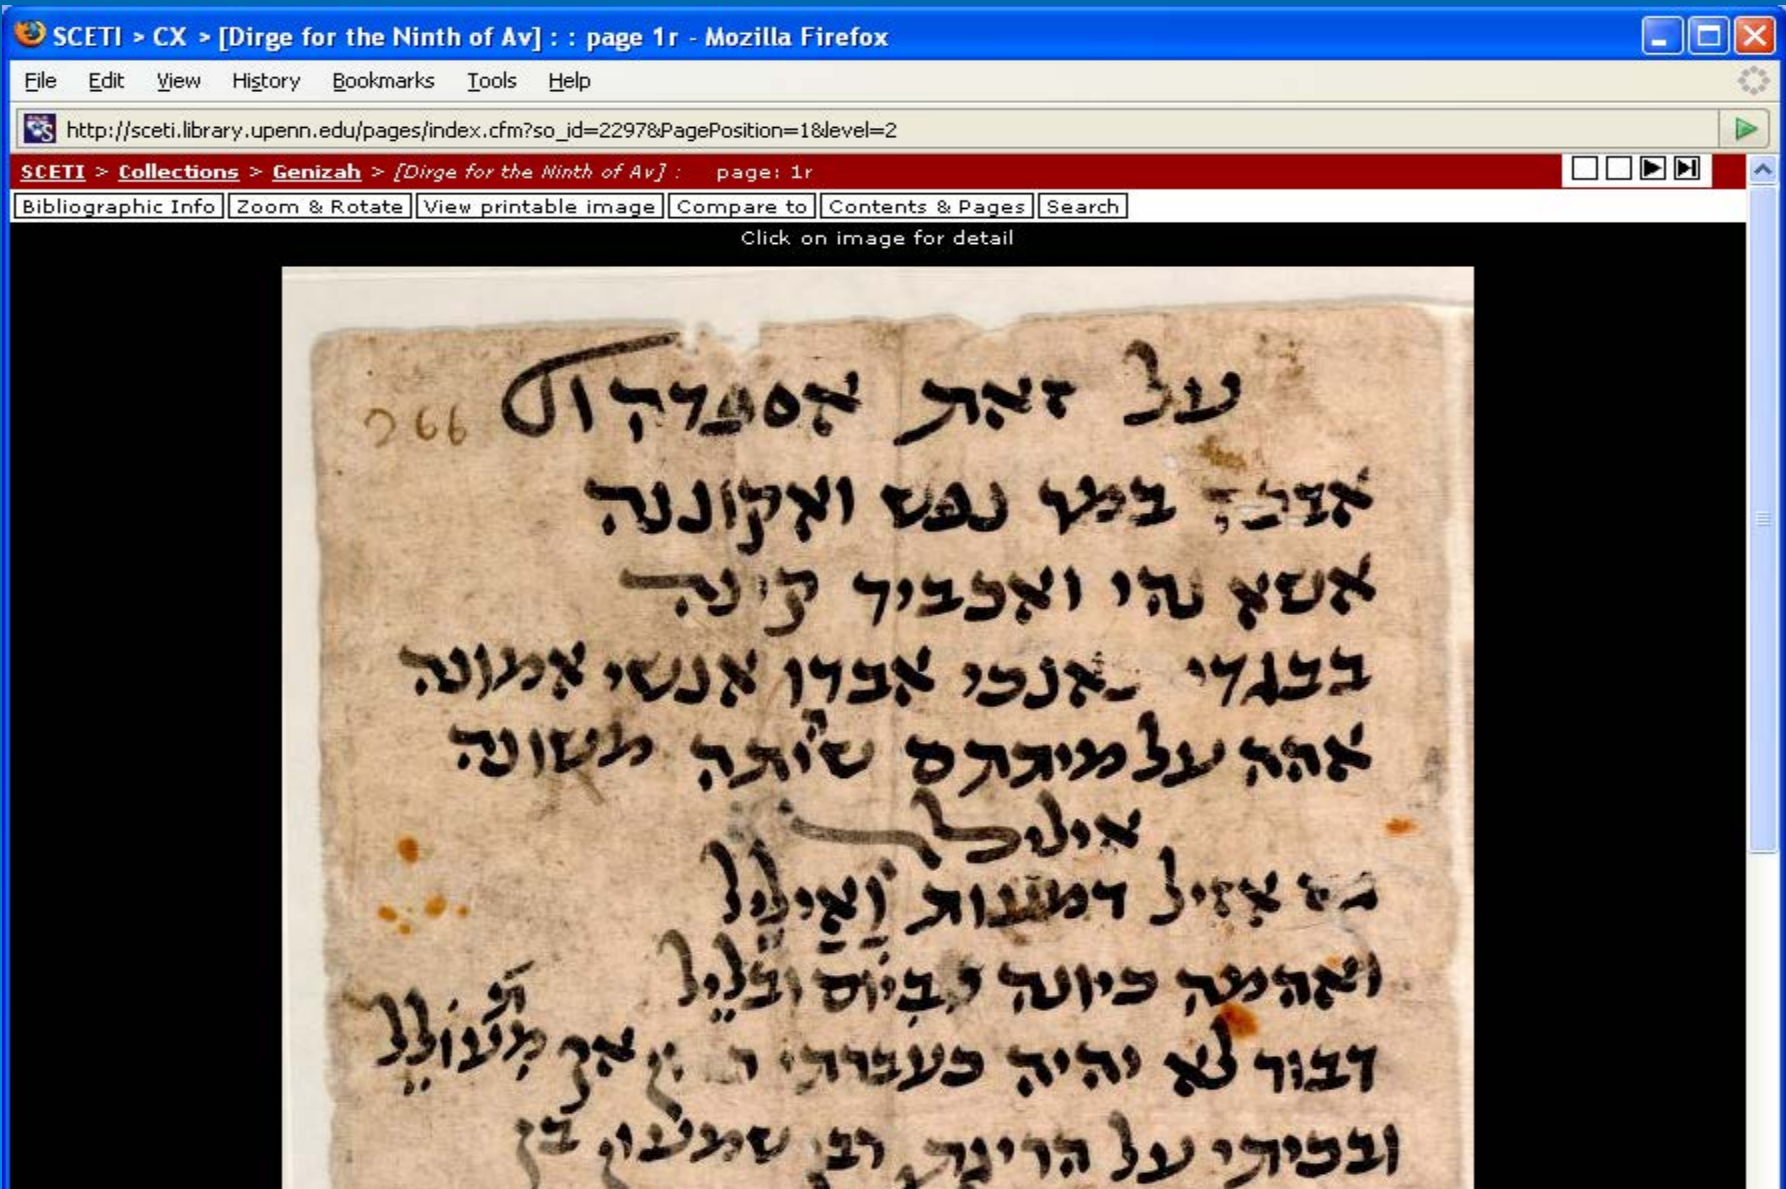 SCETI > CX > [Dirge for the Ninth of Av] : : page 1r - Mozilla Firefox
File Edit View History Bookmarks Tools Help
http://sceti.library.upenn.edu/pages/index.cfm?so_id=2297&PagePosition=1&level=2
SCETI > Collections > Genizah > [Dirge for the Ninth of Av] : page: 1r
Bibliographic Info Zoom & Rotate View printable image Compare to Contents & Pages Search
Click on image for detail
על זאת אספדה ול
266
אבכה במר נפש ואקוננה
אשא נהי ואכביר קינה
בבגדי אנכי אבדו אנשי אמונה
אהה על מיתתם שיתה משונה
איליל
אזיל דמעות וַאֲילֵיל
ואהמה כיונה בְּיוֹם וּבְלֵיל
דבור לא יהיה כעברתי אך מְעוֹלֵל
ובכיתי על הריגת רבן שמעון בן